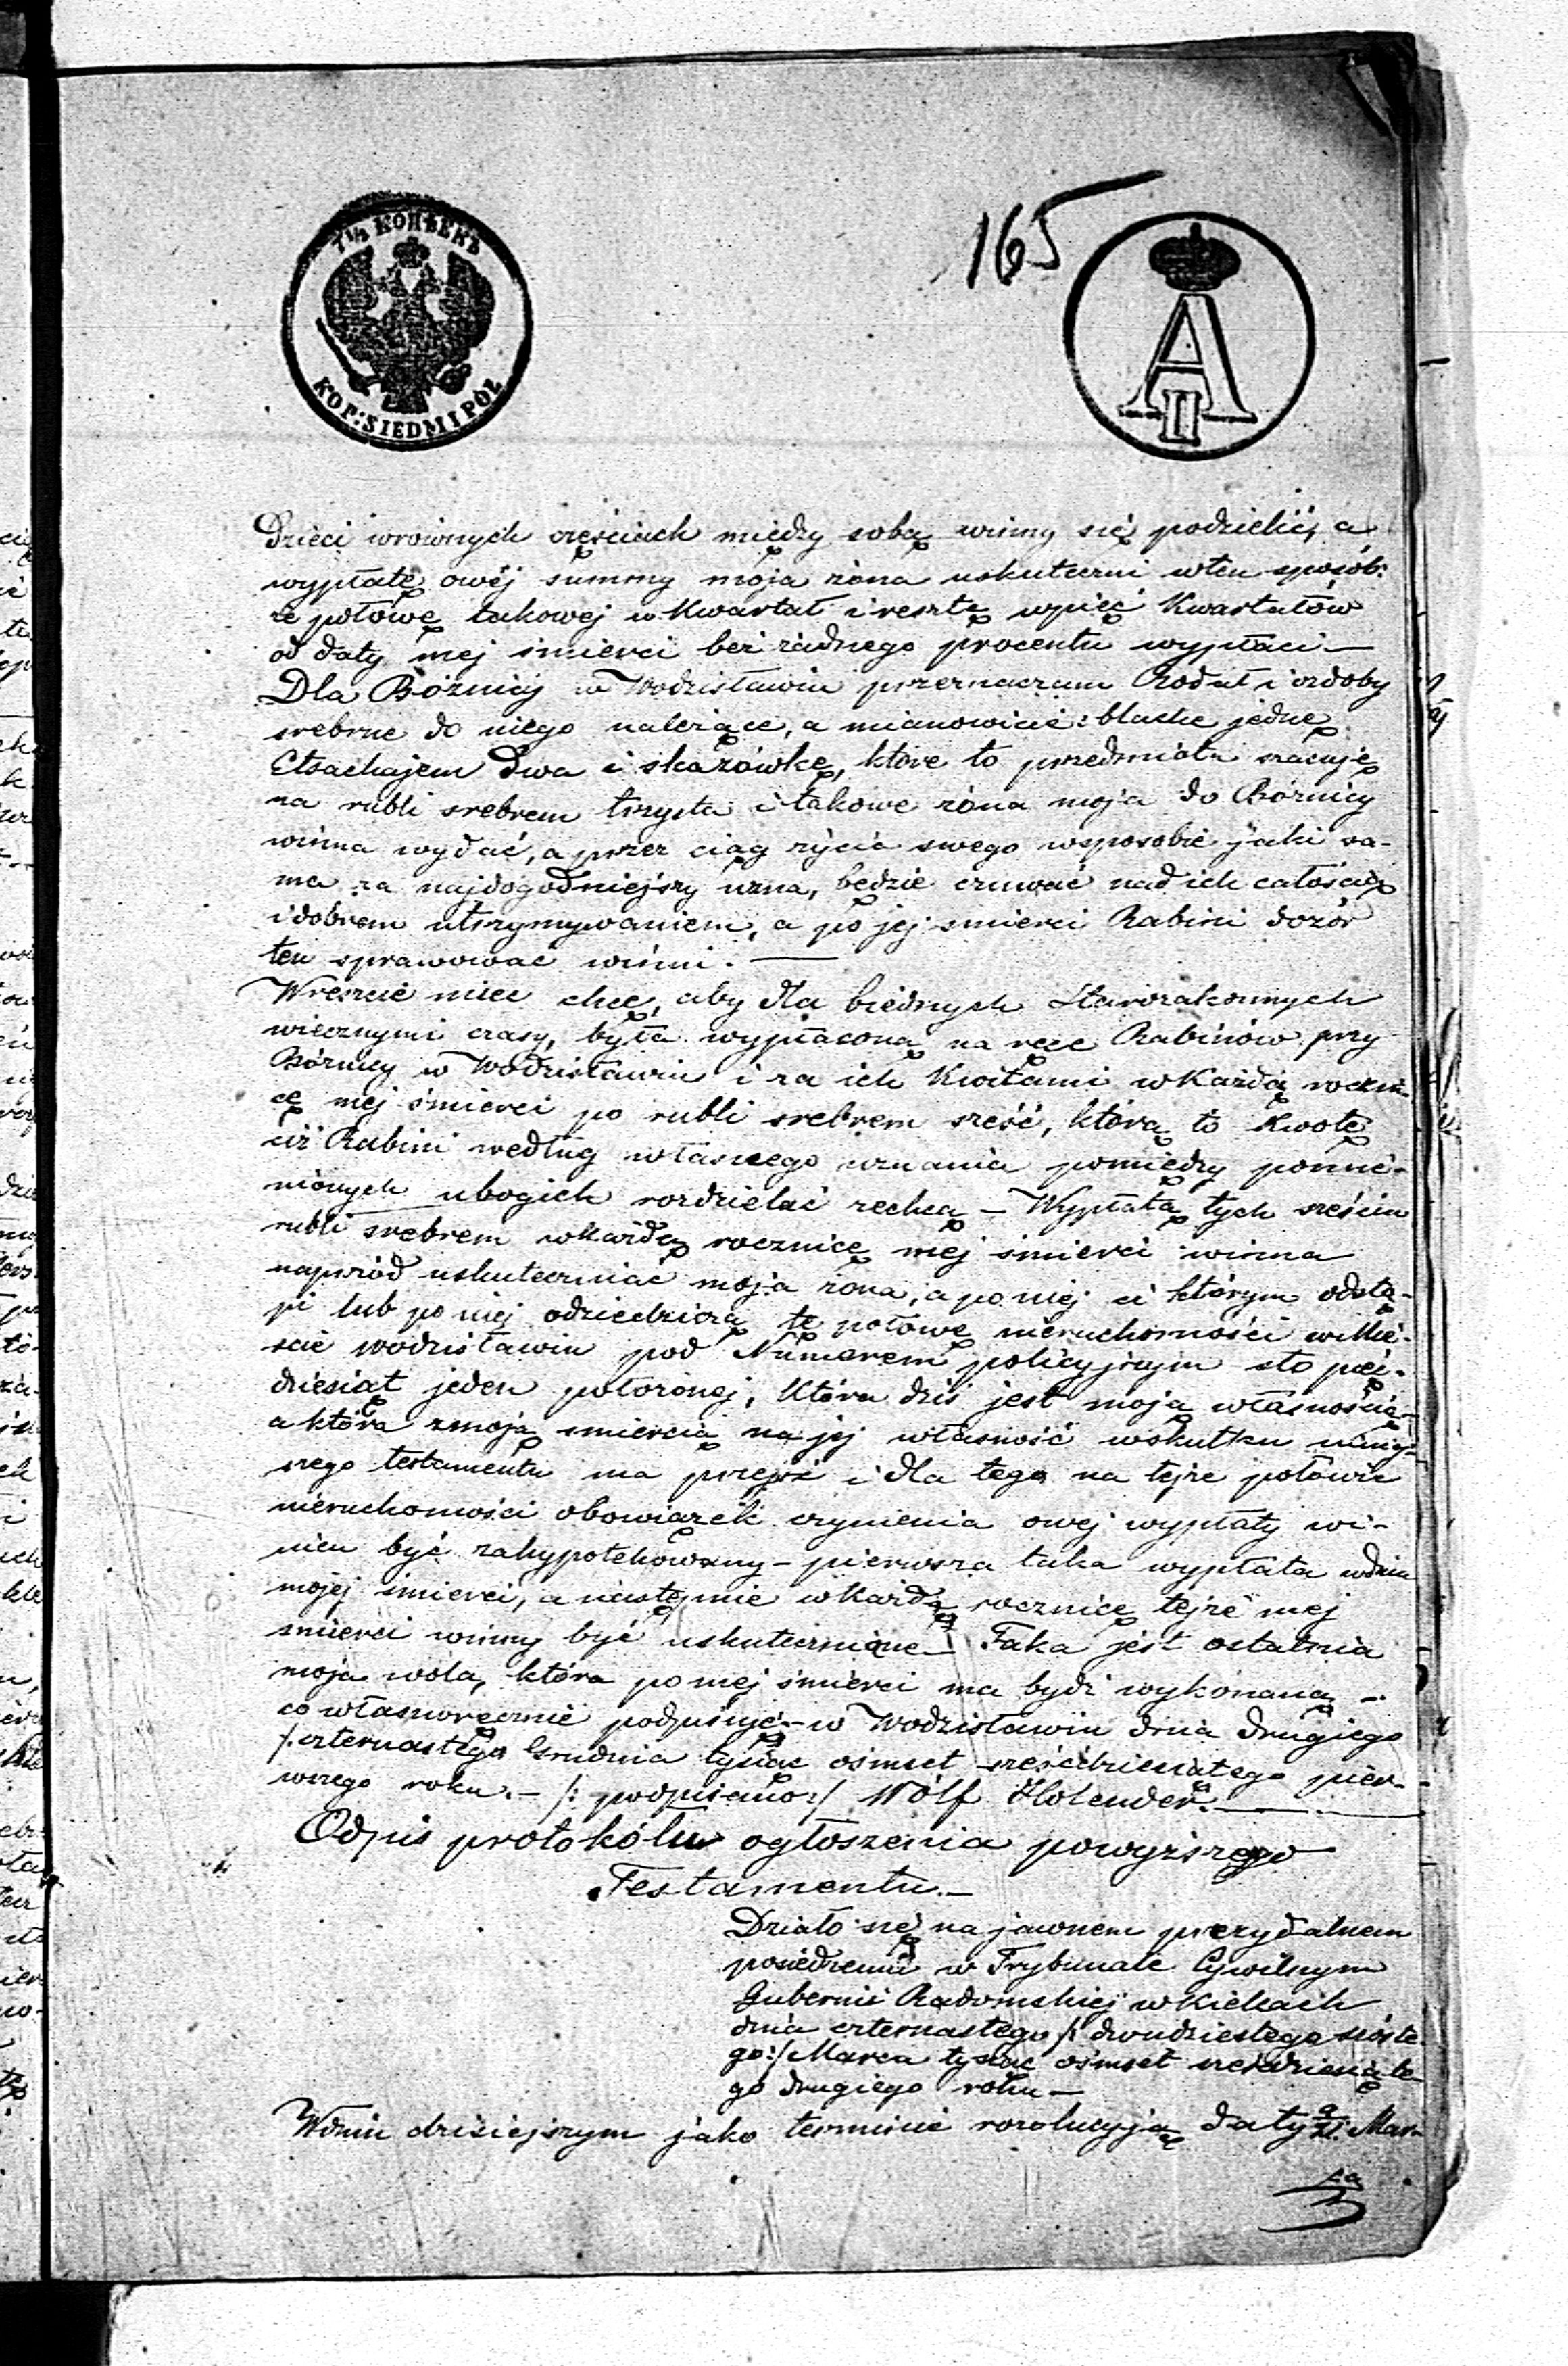 7½ КОПѢЕКЪ
KOP: SIEDM I PÓŁ
165
A II
Dzieci wrównych częściach między sobą winny się podzielić, a
wypłatę owéj summy moja żona uskuteczni wten sposób:
że połowę takowej w Kwartał i resztę wpięć Kwartałów
od daty mej śmierci bez żadnego procentu wypłaci —
Dla Bóżnicy w Wodzisławiu przeznaczam Rodał i ozdoby
srebrne do niego należące, a mianowicie: blachę jednę
Etsachajem dwa i skazówkę, które to przedmiota szacuję
na rubli srebrem trzysta i takowe żona moja do Bóżnicy
winna wydać, a przez ciąg życia swego wsposobie jaki sa-
ma za najdogodniejszy uzna, będzie czuwać nad ich całością
i dobrem utrzymywaniem, a po jej śmierci Rabini dozór
ten sprawować winni. —
Wreszcie mieć chcę, aby dla biednych Starozakonnych
wiecznymi czasy, była wypłaconą na ręce Rabinów przy
Bóżnicy w Wodzisławiu i za ich Kwitami w Każdą roczni-
cę mej śmierci po rubli srebrem sześć, którą to Kwotę
ciż Rabini według własnego uznania pomiędzy pomie-
nionych ubogich rozdzielać zechcą — Wypłatą tych sześciu
rubli srebrem wkażdą rocznicę mej śmierci winna
naprzód uskuteczniać moja żona, a po niej ci którym odstą-
pi lub po niej odziedziczą tę połowę nieruchomości w Mie-
ście Wodzisławiu pod Numerem policyjnym sto pięć-
dziesiąt jeden położonej, Która dziś jest moją własnością
a która zmoją śmiercią na jej własność wskutku niniej-
szego testamentu ma przejść i dla tego na tejże połowie
nieruchomości obowiązek czynienia owej wypłaty wi-
nien być zahypotekowany — pierwsza taka wypłata wdniu
mojej śmierci, a następnie wKażdą rocznicę tejże mej
śmierci winny być uskutecznione — Taka jest ostatnia
moja wola, która po mej śmierci ma bydź wykonaną —
co własnoręcznie podpisuję — w Wodzisławiu dnia drugiego
/: czternastego Grudnia tysiąc ośmset sześćdziesiątego pier-
wszego roku. — /: podpisano :/ Wólf Holender. —
Odpis protokółu ogłoszenia powyższego
Testamentu. —
Działo się na jawnem prezydalnem
posiedzeniu w Trybunale Cywilnym
Gubernii Radomskiej w Kielcach
dnia czternastego /: dwudziestego szóste-
go :/ Marca tysiąc ośmset sześćdziesiąte-
go drugiego roku —
Wdniu dzisiejszym jako terminie rezolucyją daty 9/21 Mar-
ca